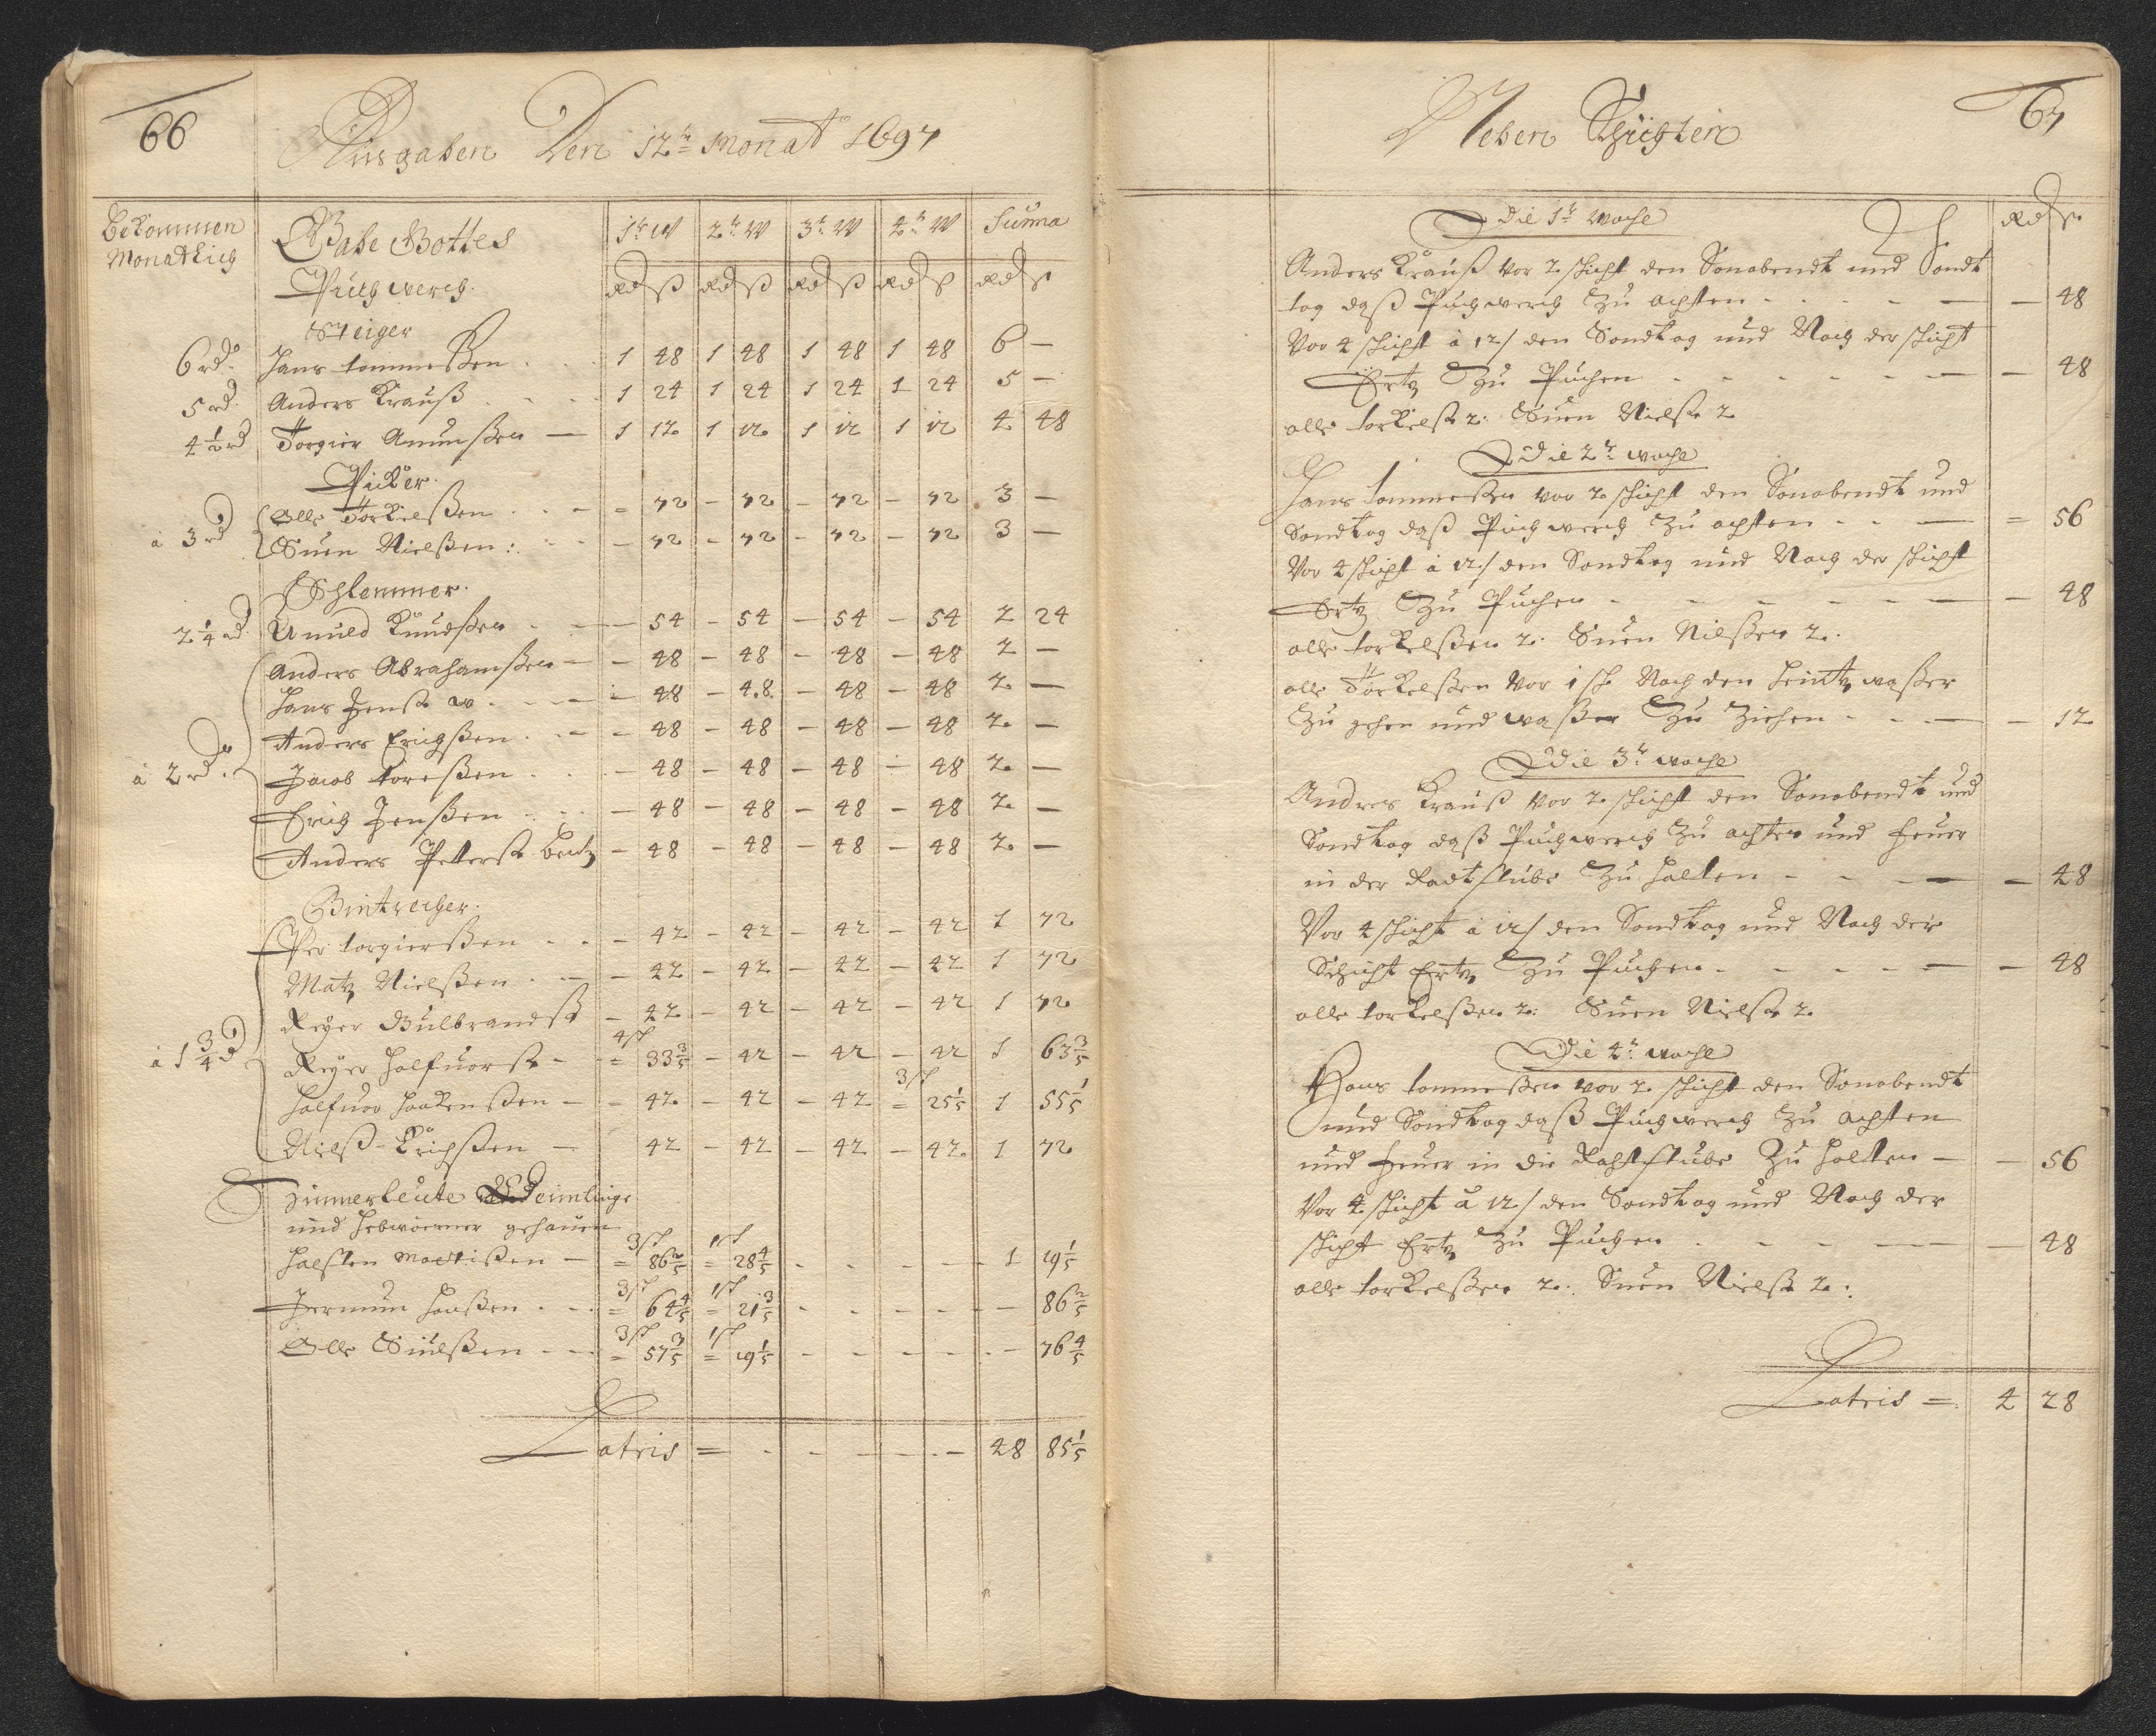 66
Ausgaben Den 12tr Monat 1697
Bekommen
Monatlich
Gabe Gottes
Puchwerch.
1tr W 2tr W 3tr W 4tr W Suma
Rd ß Rd ß Rd ß Rd ß Rd ß
Steiger
6 rd. Hans tommeßen . . 1 48 1 48 1 48 1 48 6 —
5 rd. Anders Krauß . . . 1 24 1 24 1 24 1 24 5 —
4 1/2 rd Torgier Amunßen — 1 12 1 12 1 12 1 12 4 48
Pucker.
Olle Torkelßen . . - = 72 - 72 - 72 - 72 3 —
à 3 rd
Suen Nielßen : - - - 72 - 72 - 72 - 72 3 —
Schlemmer.
2 1/4 rd. Amuld Knudßen - - 54 - 54 - 54 - 54 2 24
Anders Abrahamßen - - 48 - 48 - 48 - 48 2 —
Hans Jenß - 48 - 48 - 48 - 48 2 —
Anders Erichßen . - - 48 - 48 - 48 - 48 2 —
à 2 rd. Jacob toreßen . . - 48 - 48 - 48 - 48 2 —
Erich Jenßen . . - 48 - 48 - 48 - 48 2 —
Anders Peterß - 48 - 48 - 48 - 48 2 —
Per torgierßen . . - 42 - 42 - 42 - 42 1 72
Matz Nielßen . - - 42 - 42 - 42 - 42 1 72
Reyer Gulbrandß - 42 - 42 - 42 - 42 1 72
4 sch
à 1 3/4 d Reyer Halfuorß - = 33 3/5 - 42 - 42 - 42 1 63 3/5
3 sch
Halfuor Haakenßen - - 42 - 42 - 42 = 25 1/5 1 55 1/5
Nielß Erichßen — 42 - 42 - 42 - 42 1 72
Zimmerleute
und gehauen
3 sch 1 sch
Halsten - = 86 2/5 = 28 4/5 - - - - 1 19 1/5
3 sch 1 sch
Hermun Hanßen . - = 64 4/5 = 21 3/5 - - - - — 86 2/5
3 sch 1 sch
Olle - - = 57 3/5 = 19 1/5 - - - - — 76 4/5
Latris = - - - - - 48 85 1/5
67
Neben Schichten
Die 1tr Woche
Rd ß
Anders Krauß vor 2 schicht den Sonabendt und Sondt
tag daß Puchwerch Zu achten - - - - — — 48
Vor 4 schicht à 12 ß den Sondtag und Nach der schicht
Ertz Zu Puchen - - - - - — — 48
olle torkelß 2: Suen Nielß 2
Die 2tr woche
Hans tommeßen vor 2 schicht den Sonabendt und
Sondtag daß Puchwerch Zu achten - - — = 56
Vor 4 schicht à 12 ß den Sondtag und Nach der schicht
Ertz Zu Puchen - - - - - — — 48
olle torkelßen 2: Suen Nielßen 2.
olle Torkelßen Vor 1 sch Nach den waßer
Zu gehen und waßer Zu Ziehen - - — — 12
Die 3tr woche
Andres Krauß vor 2 schicht den Sonabendt und
Sondtag daß Puchwerch Zu achten und feuer
in der Radtstube Zu halten - - - — — 48
Vor 4 schicht à 12 ß den Sondtag und Nach der
Schicht Ertz Zu Puchen - - - - — — 48
olle torkelßen 2: Suen Nielß 2
Die 4tr woche
Hans tommeßen vor 2 schicht den Sonabendt
und Sondtag daß Puchwerch Zu achten
und feuer in die Rahtstube Zu halten — — 56
Vor 4 schicht à 12 ß den Sondtag und Nach der
schicht Ertz Zu Puchen - - - - — — 48
olle torkelßen 2: Suen Nielß 2:
Latris = 4 28